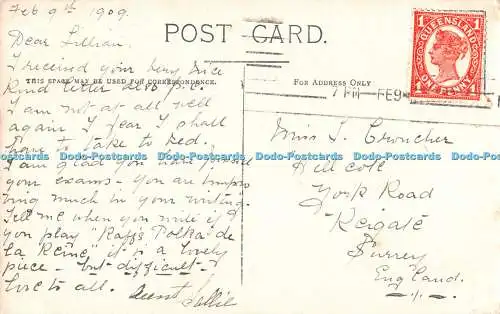 Feb 9th 1909.
POST CARD.
QUEENSLAND
1 1
1 1
ONE PENNY
7 PM FE 9
Dear Lillian.
I received your very nice
THIS SPACE MAY BE USED FOR CORRESPONDENCE.
For Address Only
kind letter also p.c.
I am not at all well
again. I fear I shall
have to take to bed.
Dodo-Postcards Dodo-Postcards Dodo-Postcards Dodo-Postcards Dodo-Postcards
I am glad you have
your exams - You are impro
ving much in your writing.
Tell me when you write if
you play "Raff's Polka de
la Reine" it is a lovely
piece - but difficult.
love to all. Aunt Sallie
Miss L. Croucher
Hill Cote
York Road
Reigate
Surrey
England.